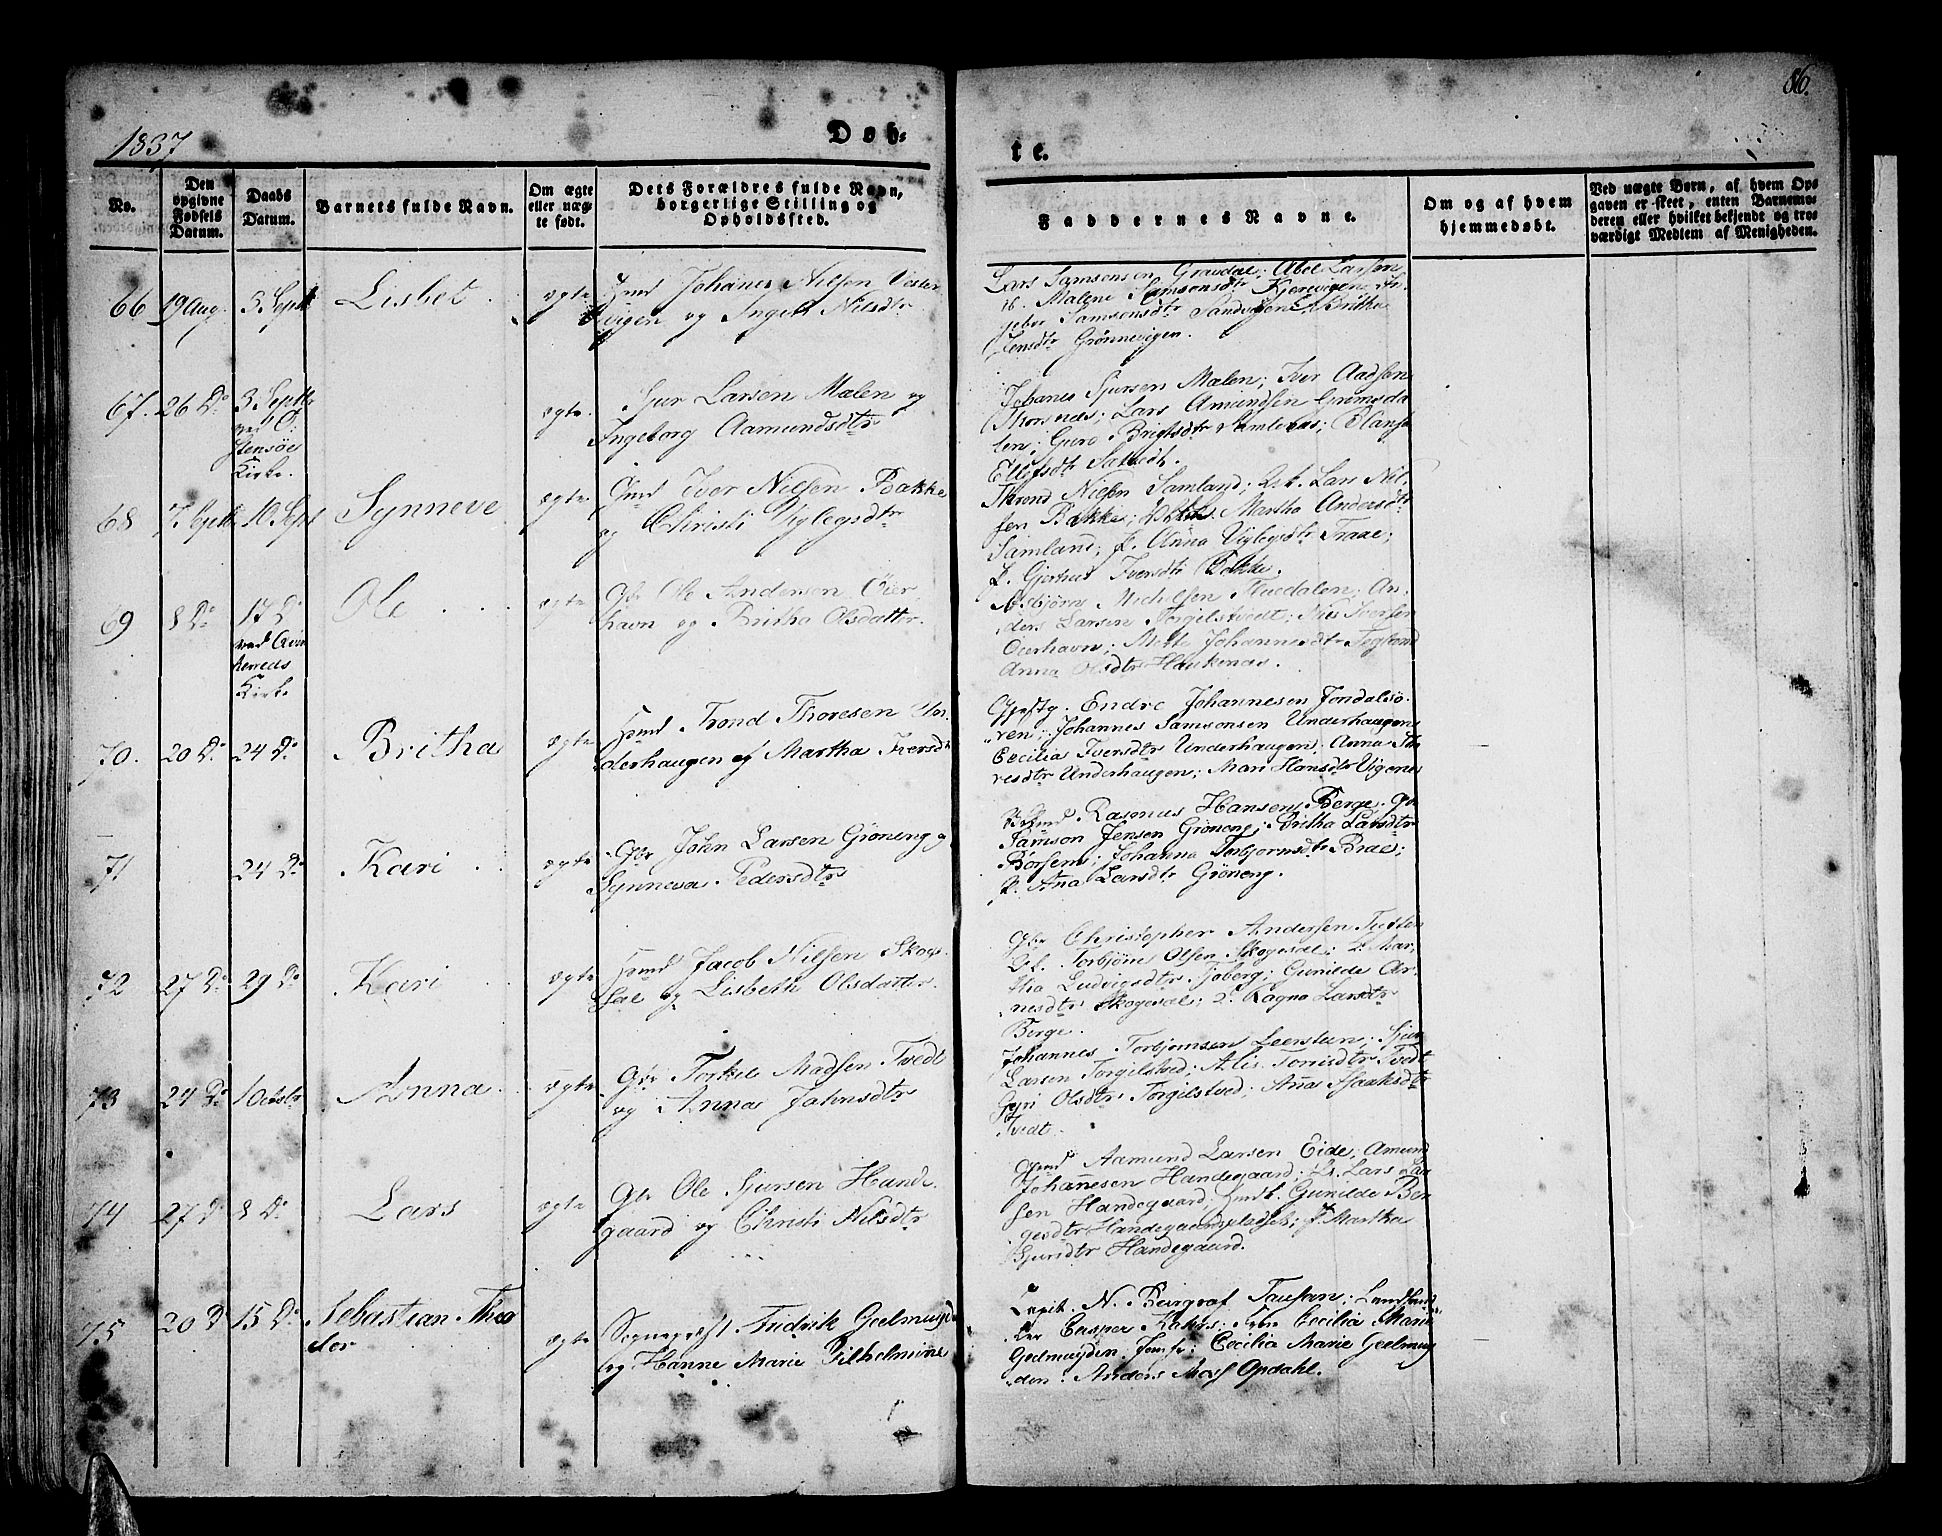 1837
Døb-
te.
86.
No.
Den opgivne Fødsels Datum.
Daabs Datum.
Barnets fulde Navn.
Om ægte eller uægte født.
Dets Forældres fulde Navn, borgerlige Stilling og Opholdssted.
Faddernes Navne.
Om og af hvem hjemmedøbt.
Ved uægte Børn, af hvem Opgaven er skeet, enten Barnemoderen eller hvilket bekjendt og troværdigt Medlem af Menigheden.
66 19 Aug. 3 Septb Lisbet ægte Huusmd Johanes Nilsen Vester
vigen og Nilsdtr
Lars Samsonsen Gravdal; Abel Larsen
Malene Samsonsdtr Kjervigen; In-
geber Samsonsdtr Sandvigen; Britha
Jensdtr Grønnevigen.
67. 26 Do 3 Septbr
ved O:
stensøe
Kirke.
ægte. Sjur Larsen Malen og
Ingeborg Aamundsdtr
Johanes Sjursen Malen; Iver Aadsen
Thorsnes; Lars Amundsen Grimsda
len; Guro Brigtsdtr Samlenes;
Ellefsdtr
68 7 Septb 10 Sept Synneve ægte Huusmd Iver Nilsen Bakke
og Christi Viglegsdtr
Thrond Nielsen Samland; Lars Niel-
sen Bakke; Martha Andersdtr
Samland; P. Anna Viglegsdtr Traae;
P. Gjertrut Iversdtr Bakke.
69 8 Do 17 Do
ved
kereds
Kirke
Ole ægte Gbr Ole Anderson Oier
havn og Britha Olsdatter.
Asbjørn Nichelsen Tuedalen; An-
ders Larsen Torgilstvedt; Nils Iversen
Oierhavn; Mette Johannesdtr Tegland
Anna Olsdtr Haukenæs.
70. 20 Do 24 Do Britha ægte Huusmd Trond Thoresen Un-
derhaugen og Martha Iversdtr
Gjestg. Endre Johannesen Jondalsø-
ren; Johannes Samsonsen Underhaugen
Cecilia Iversdtr Underhaugen; Anna Tho
resdtr Underhaugen; Mari Hansdtr Vigenes
71 24 Do Kari ægte Gbr John Larsen Grøneng og
Synneva Pedersdtr
Rasmus Hansen Berge.
Samson Jensen Grøneng; Britha Larsdtr
Børsem; Johanna Torbjornsdtr Brae;
P. Ana Larsdtr Grøneng.
72 27 Do 29 Do Kari ægte Huusmd Jacob Nilsen Skoge-
sal og Lisbeth Olsdatter.
Gbr Christopher Andersen Tveten
Torbjøne Olsen Skogesal; P. Mar-
tha Ludvigsdtr Tjoberg; Gunilde Ar-
nesdtr Skogesal; P. Ragna Larsdtr
Berge.
73 24 Do 1 Octobr Anna ægte Gbr Torkel Madsen Tvedt
og Anna Jahnsdtr
Johannes Torbjørnsen Leersteen; Sjur
Larsen Torgilstved; Alis Torrisdtr Tvedt
Gyri Olsdtr Torgilstved; Ana Isaaksdtr
Tvedt.
74 27 D 8 Do Lars ægte Gbr Ole Sjursen Hande-
gaard og Christi Nilsdtr
Aamund Larsen Eide; Amund
Johannesen Handegaard; Lars Lar
sen Handegaard; Gunilde Ber
gesdtr Handegaardspladset; P. Martha
Sjursdtr Handegaard.
75 20 D 15 Do Sebastian Theo
dor
ægte Sognepræst Fredrik Geelmuyden
og Hanne Marie Vilhelmine
Capit. N. Bergraf Tausan; Landhand-
ler Casper Kahrs; Fru Cecilia Marie
Geelmuyden. Jomfr: Cecilia Marie Geelmuy
den. Anders Opdahl.